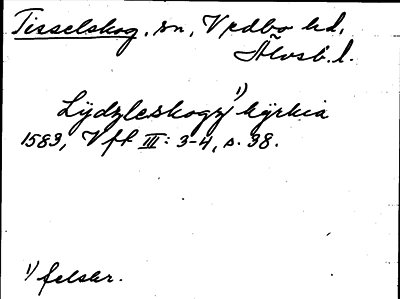 Tisselskog, sn, Vedbo hd,
Älvsb. l.
Lÿdzleskogz¹⁾ kÿrkia
1583, Vft III: 3-4, s. 38.
¹⁾ felskr.